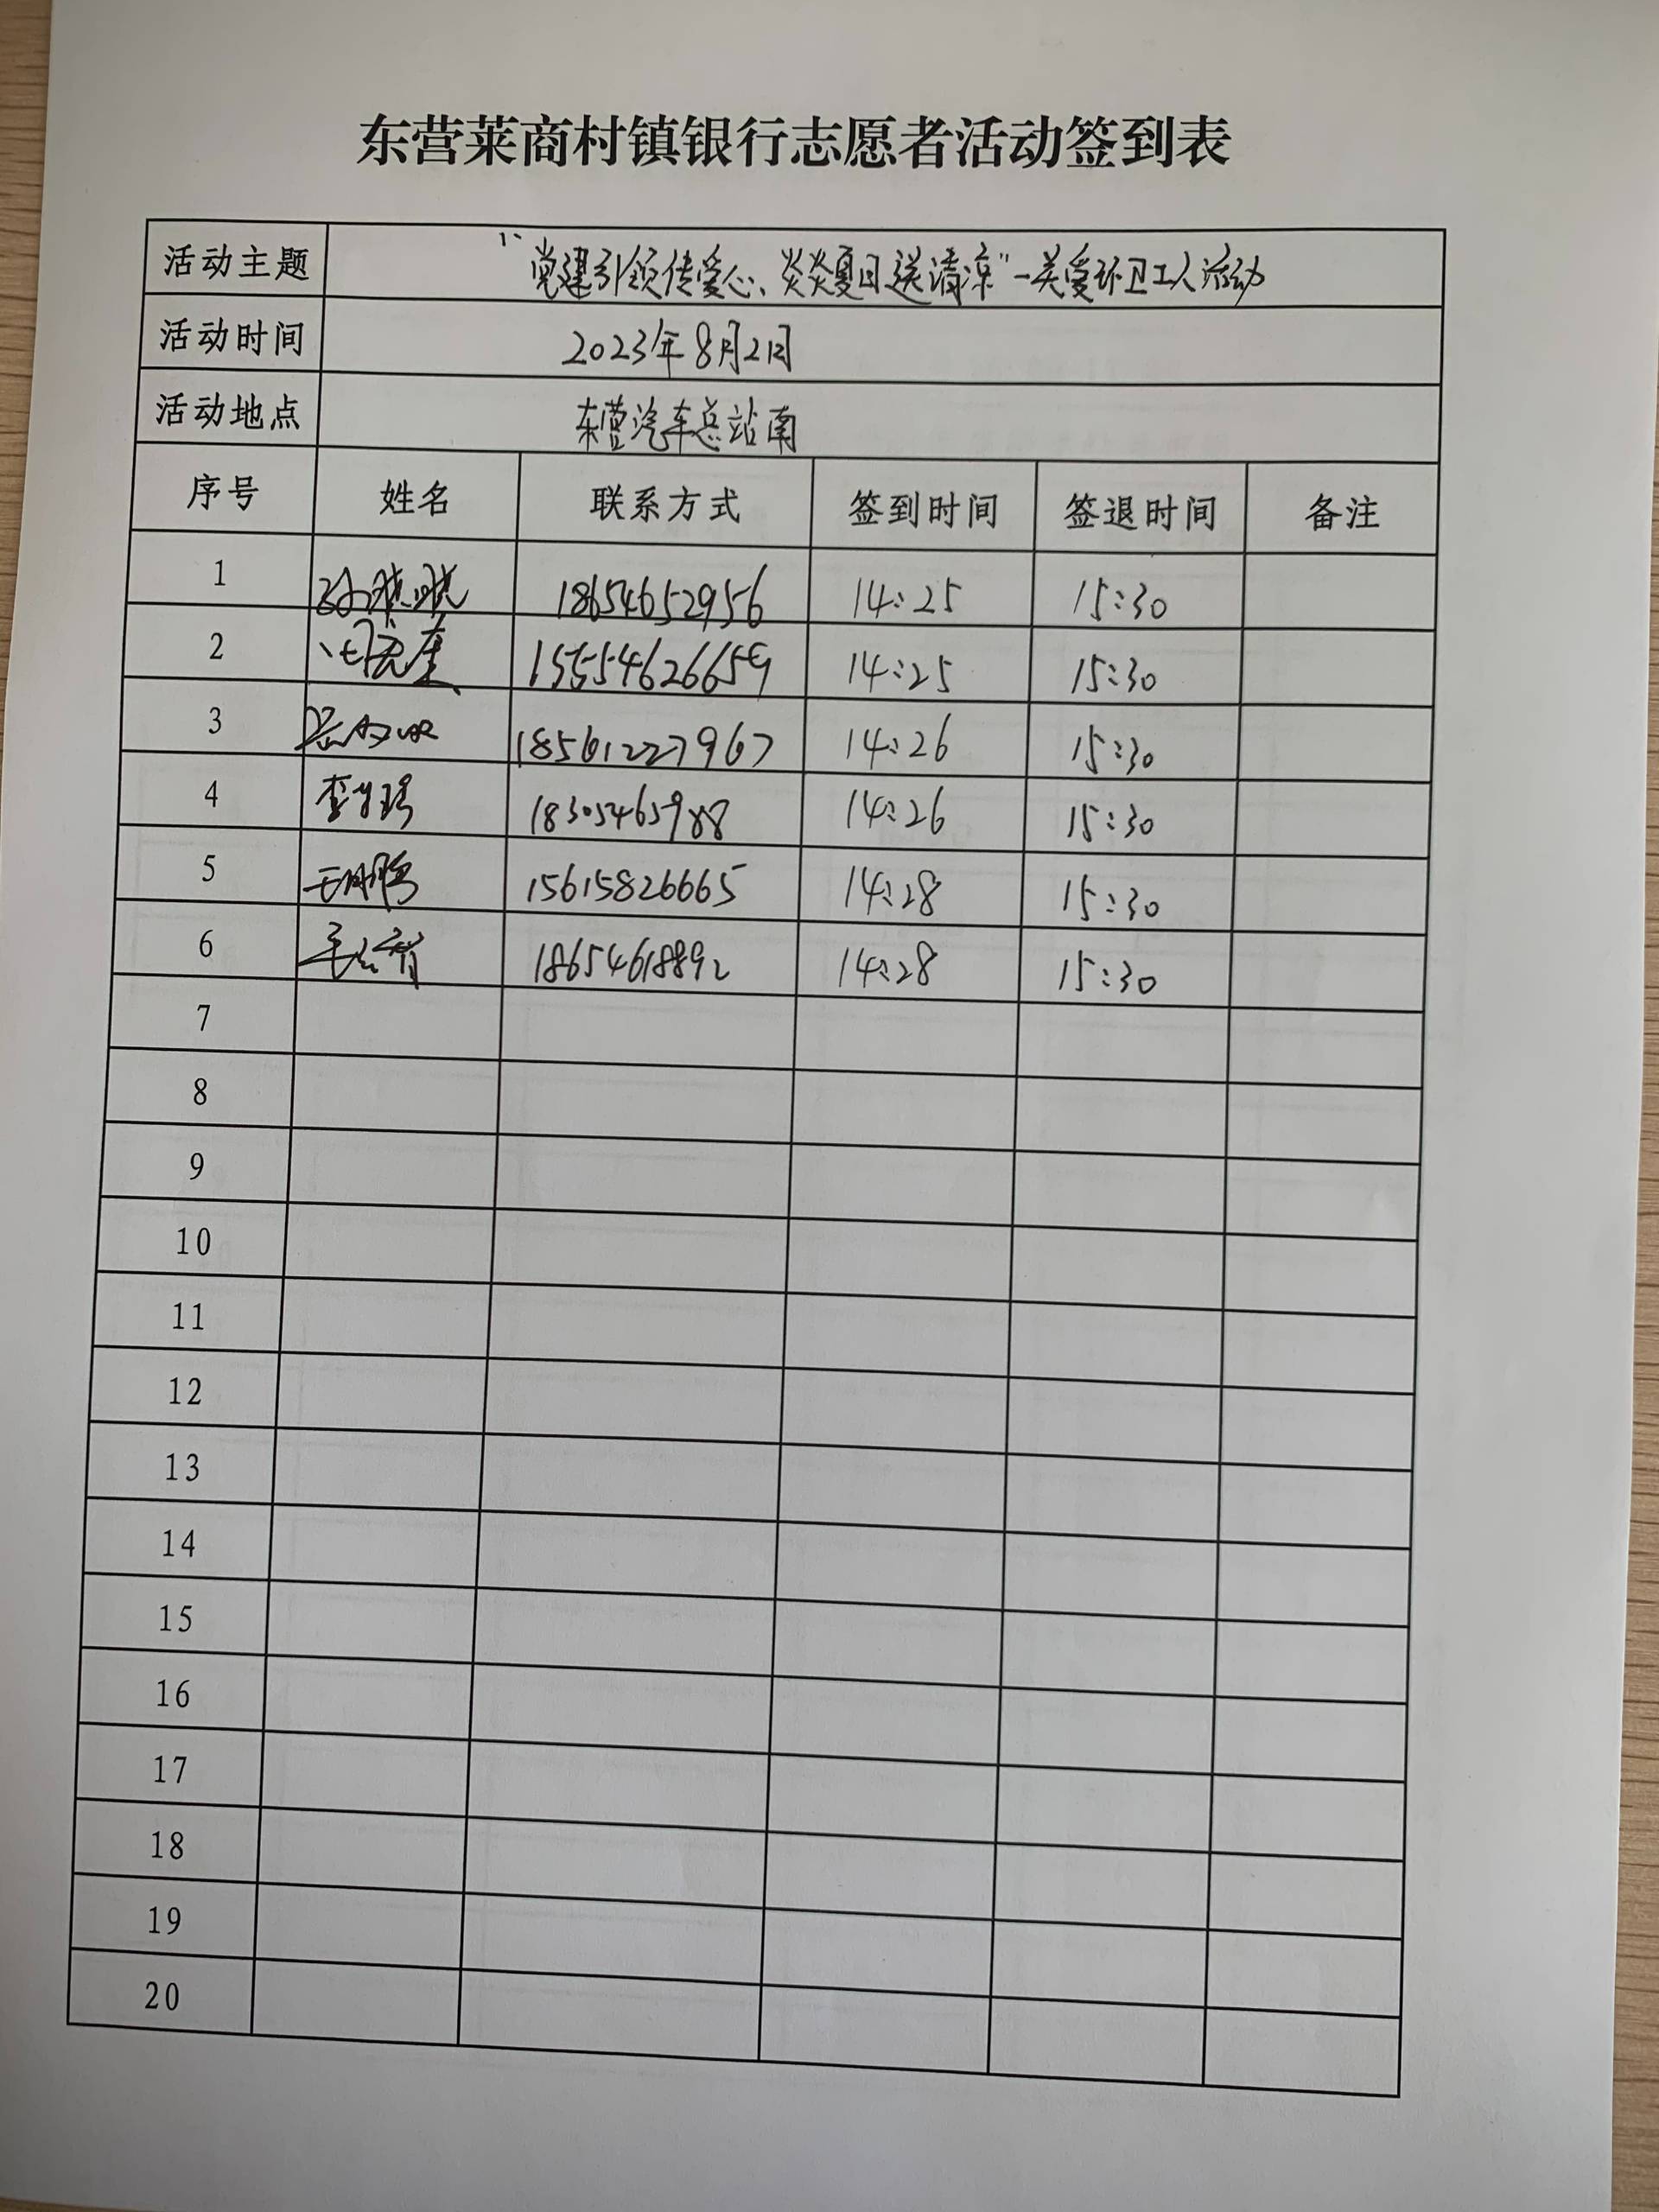 东营莱商村镇银行志愿者活动签到表
活动主题 “党建引领传爱心、炎炎夏日送清凉”-关爱环卫工人活动
活动时间 2023年8月2日
活动地点 东营汽车总站南
序号 姓名 联系方式 签到时间 签退时间 备注
1 18654652956 14:25 15:30
2 15554626659 14:25 15:30
3 18561227967 14:26 15:30
4 18305465988 14:26 15:30
5 15615826665 14:28 15:30
6 18654618892 14:28 15:30
7
8
9
10
11
12
13
14
15
16
17
18
19
20